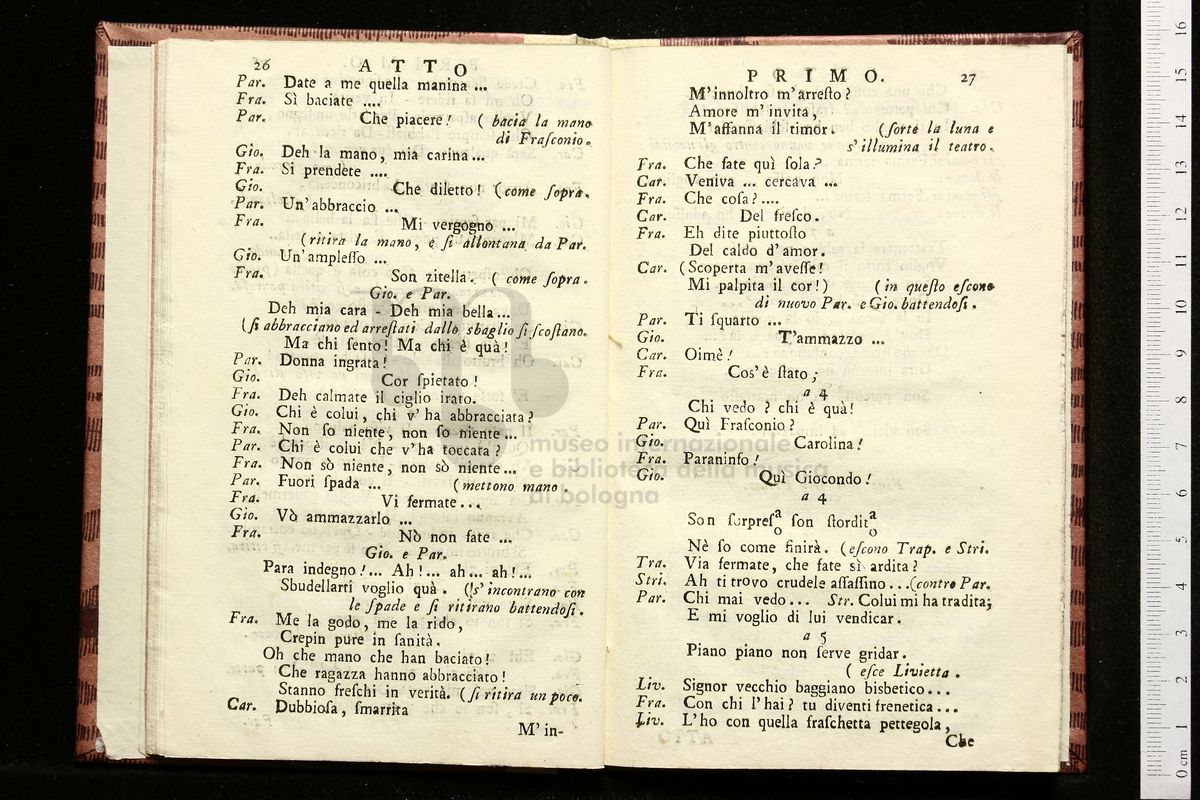 26 ATTO
Par. Date a me quella manina ...
Fra. Sì baciate ....
Par. Che piacere! ( bacia la mano
di Fraſconio.
Gio. Deh la mano, mia carina...
Fra. Sì prendete ....
Gio. Che diletto! ( come ſopra.
Par. Un'abbraccio ...
Fra. Mi vergogno ...
(ritira la mano, e ſi allontana da Par.
Gio. Un'ampleſſo ...
Fra. Son zitella. ( come ſopra.
Gio. e Par.
Deh mia cara - Deh mia bella...
(ſi abbracciano ed arreſtati dallo sbaglio ſi ſcoſtano.
Ma chi ſento! Ma chi è quà!
Par. Donna ingrata!
Gio. Cor ſpietato!
Fra. Deh calmate il ciglio irato.
Gio. Chi è colui, chi v'ha abbracciata?
Fra. Non ſo niente, non ſo niente...
Par. Chi è colui che v'ha toccata?
Fra. Non sò niente, non sò niente...
Par. Fuori ſpada ... (mettono mano.
Fra. Vi fermate...
Gio. Vò ammazzarlo ...
Fra. Nò non fate ...
Gio. e Par.
Para indegno!... Ah!... ah... ah!...
Sbudellarti voglio quà. (s'incontrano con
le ſpade e ſi ritirano battendoſi.
Fra. Me la godo, me la rido,
Crepin pure in ſanità.
Oh che mano che han baciato!
Che ragazza hanno abbracciato!
Stanno freſchi in verità. (ſi ritira un poco.
Car. Dubbioſa, ſmarrita
M'in-
PRIMO. 27
M'innoltro m'arreſto?
Amore m'invita,
M'affanna il timor. (ſorte la luna e
s'illumina il teatro.
Fra. Che fate quì ſola?
Car. Veniva ... cercava ...
Fra. Che coſa?....
Car. Del freſco.
Fra. Eh dite piuttoſto
Del caldo d'amor.
Car. (Scoperta m'aveſſe!
Mi palpita il cor!) (in queſto eſcono
di nuovo Par. e Gio. battendoſi.
Par. Ti ſquarto ...
Gio. T'ammazzo ...
Car. Oimè!
Fra. Cos'è ſtato;
a 4
Chi vedo? chi è quà!
Par. Quì Fraſconio?
Gio. Carolina!
Fra. Paraninfo!
Gio. Quì Giocondo!
a 4
Son ſurpreſa ſon ſtordita
o o
Nè ſo come finirà. (eſcono Trap. e Stri.
Tra. Via fermate, che fate sì ardita?
Stri. Ah ti trovo crudele aſſaſſino...(contro Par.
Par. Chi mai vedo... Str. Colui mi ha tradita;
E mi voglio di lui vendicar.
a 5
Piano piano non ſerve gridar.
( eſce Livietta.
Liv. Signor vecchio baggiano bisbetico...
Fra. Con chi l'hai? tu diventi frenetica...
Liv. L'ho con quella fraſchetta pettegola,
Che
museo internazionale
e biblioteca della musica
di bologna
0 cm 1 2 3 4 5 6 7 8 9 10 11 12 13 14 15 16